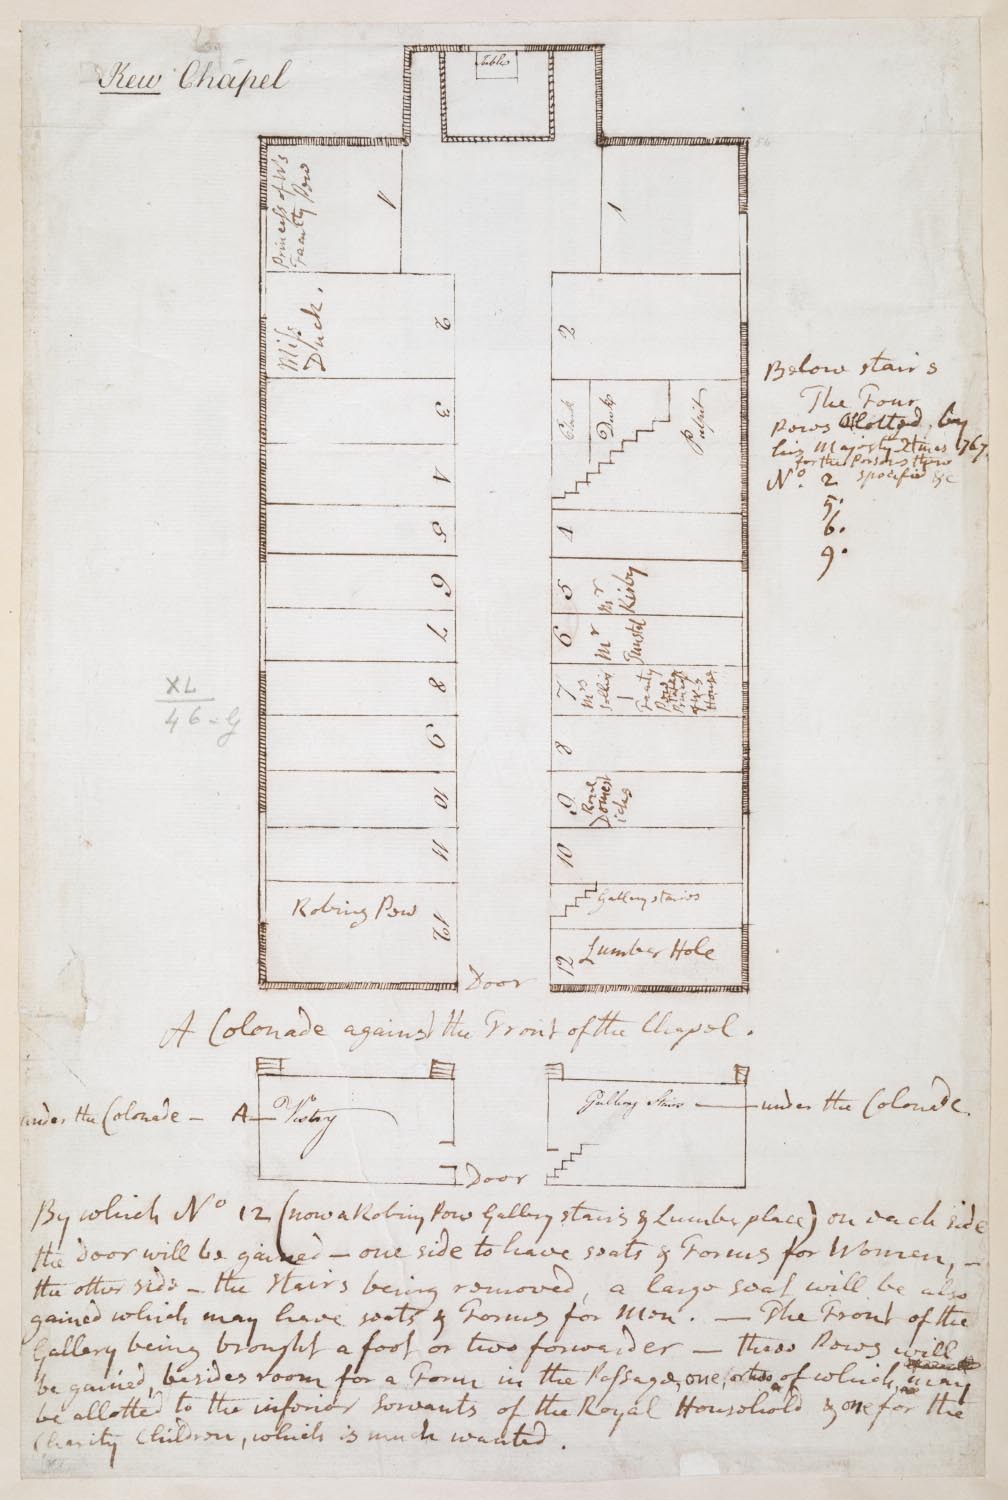 Kew Chapel
Table
56
Princess of W's
Faculty Pew
1
1
Miss
Duck.
2
2
3
Clerk
Desk
Pulpit
4
4
5
5
Mr
Kirby
6
6
Mr
Tunstal
7
7
Mrs
Faculty
Pew
House
8
8
9
9
Royl
Domest
icks
10
10
11
Robing Pew
12
Gallery stairs
12
Lumber Hole
Door
Below stairs
The Four
Pews Allotted by
his Majesty 2 times 1767.
for the Persons there
No. 2 specified &c
5.
6.
9.
XL
46-G
A Colonade against the Front of the Chapel.
under the Colonade — A — Vestry
Gallery Stairs — under the Colonade.
Door
By which No 12 (now a Robing Pew Gallery stairs & Lumber place) on each side
the door will be gained — one side to have seats & Forms for Women, —
the other side — the Stairs being removed, a large seat will be also
gained which may have seats & Forms for Men. — The Front of the
Gallery being brought a foot or two forwarder — these Pews will
be gained, besides room for a Form in the Passage, one, or two of which, may
be allotted to the inferior Servants of the Royal Household & one for the
Charity Children, which is much wanted.